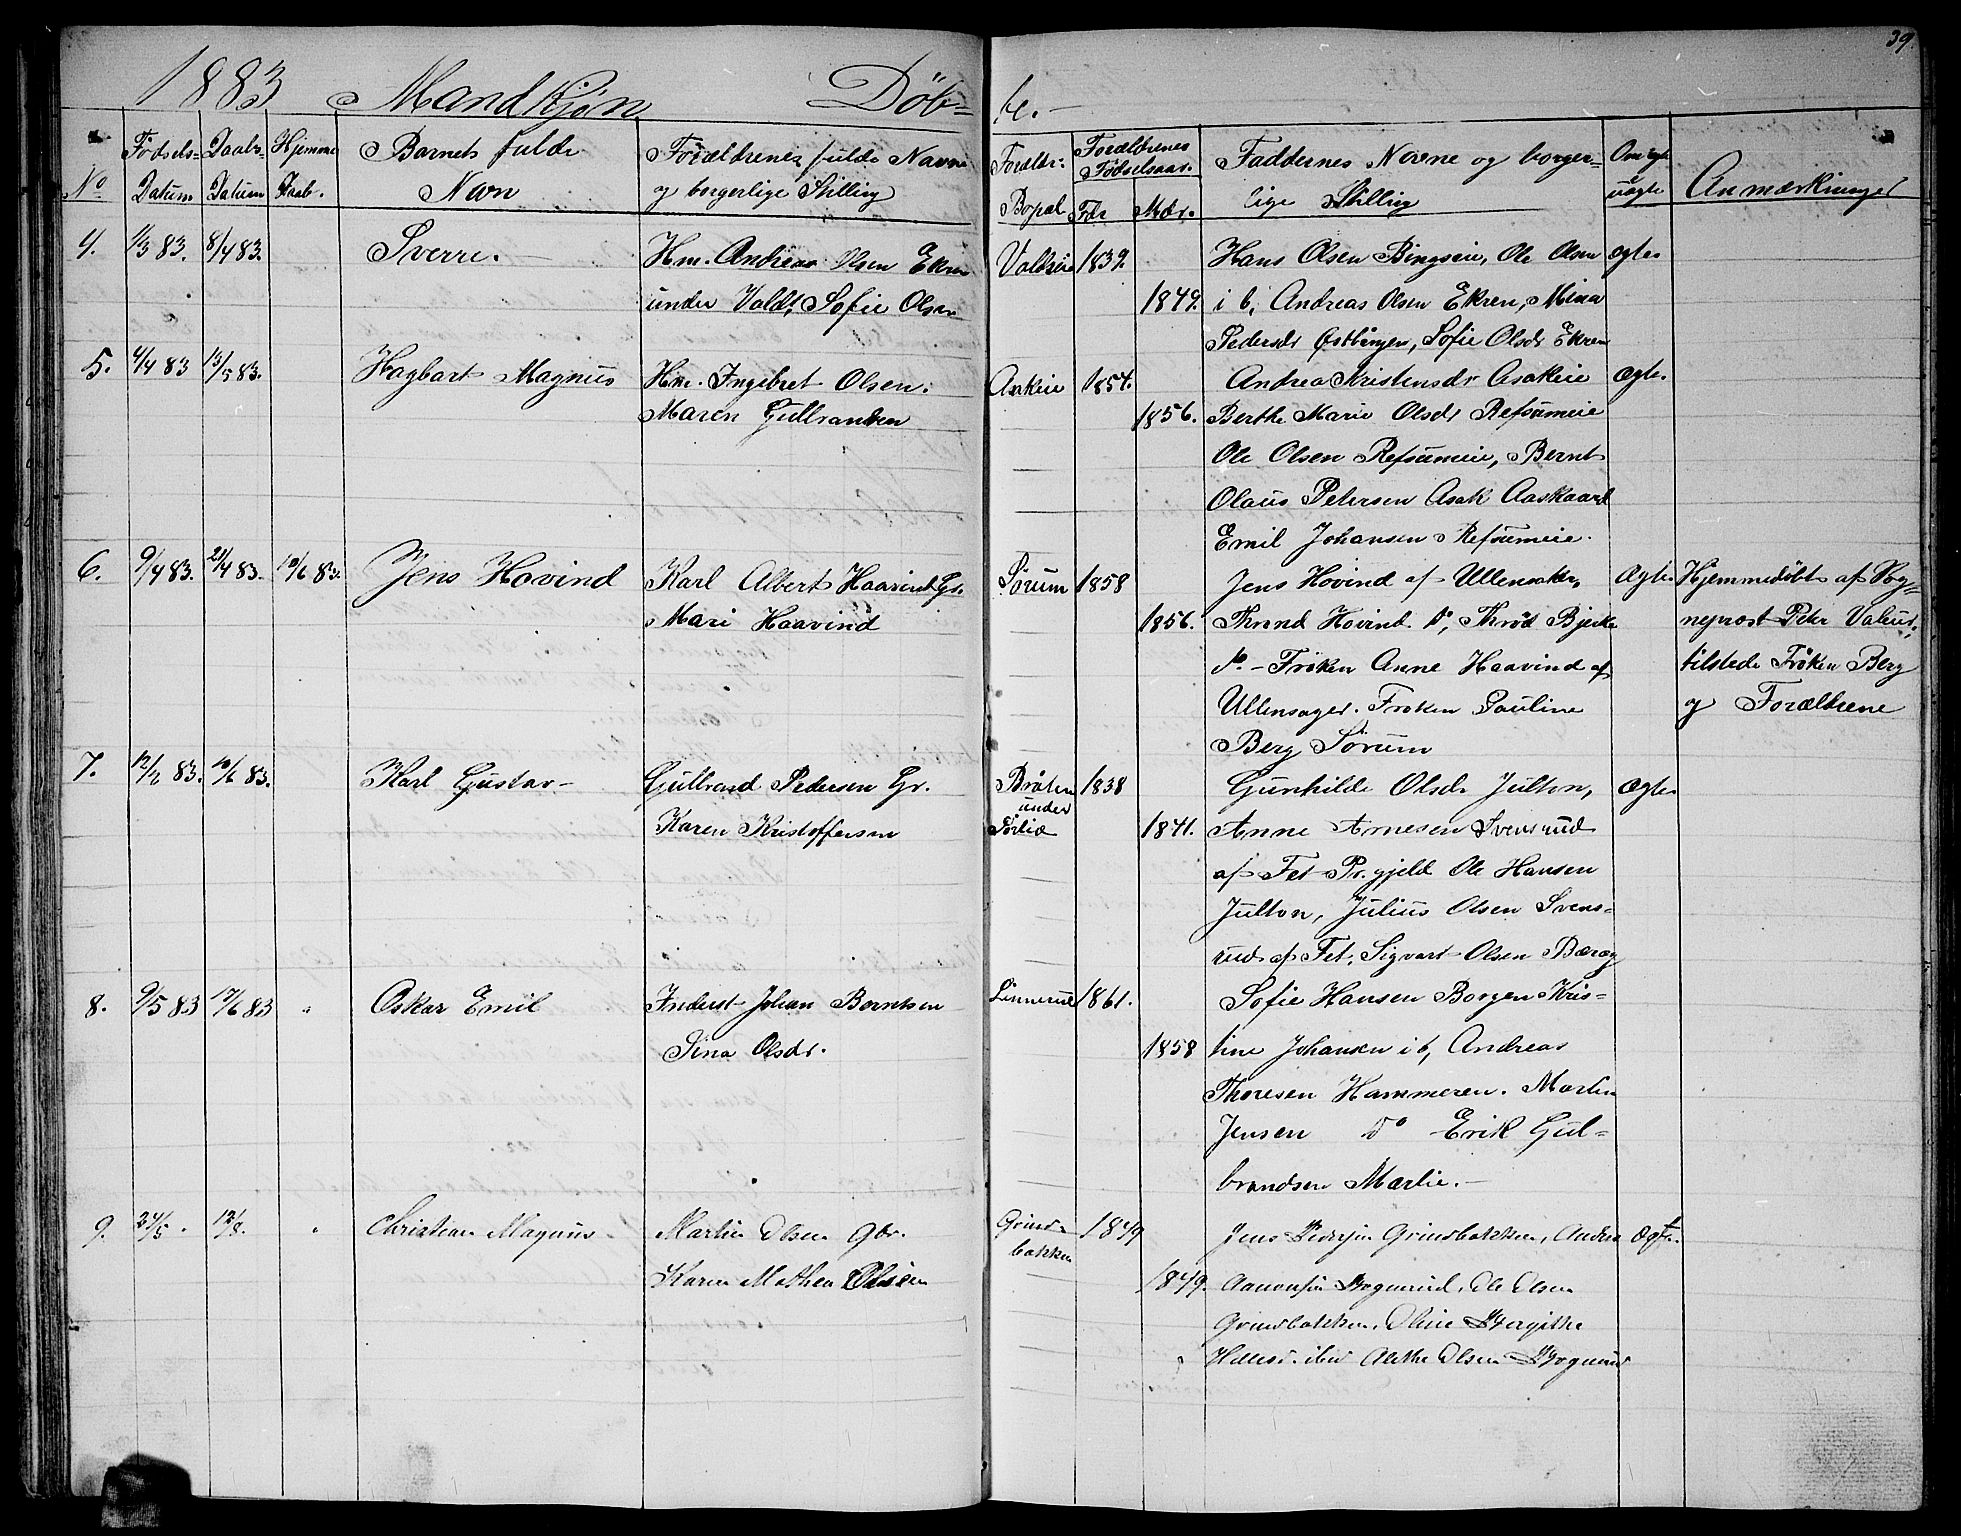 39.
1883 Mandkjøn Døb-
te.-
No Fødsels- Datum Daabs- Datum Hjemme Daab. Barnets fulde Navn Forældrenes fulde Navne og borgerlige Stilling Forældr: Bopæl Forældrenes Fødselsaar. Fdr Mdr. Faddernes Navne og borger- lige Stilling Om ægte uægte Anmærkninger
4. 1/3 83. 8/4 83. Sverre. Hm. Andreas Olsen Ekren Valdseie 1839. Hans Olsen Bingseie, Ole Olsen ægte.
under Valdt, Sofie Olsen 1849. i b, Andreas Olsen Ekren, Mina
Pedersdr Østbingen, Sofie Olsdr Ekren
5. 4/4 83 13/5 83. Hagbart Magnus Hm. Ingebret Olsen. Asakeie 1854. Andrea Kristensdr Asakeie ægte.
Maren Gulbrandsen 1856. Berthe Marie Olsdr Refsumeie
Ole Olsen Refsumeie, Bernt
Olaus Petersen Asak Aaskaard
Emil Johansen Refsumeie.
6. 9/4 83. 21/4 83. 10/6 83. Jens Hovind Karl Albert Haavind Gr. Sørum 1858 Jens Hovind af Ullensaker, Ægte. Hjemmedøbt af Sog-
Mari Haavind 1856. Thrond Hovind do, Thrød Bjerke neprost Peter Valeur,
do - Frøken Anne Haavind af tilstede Frøken Berg
Ullensager. Frøken Pauline og Forældrene
Berg Sørum
7. 12/2 83. 10/6 83. Karl Gustav- Gulbrand Pedersen Gr. Bråten 1838 Gunhilde Olsdr Julton, Ægte
under
Karen Kristoffersen Sørlie 1841. Anne Arnesen Svensrud
af Fet Pr.gjeld Ole Hansen
Julton, Julius Olsen Svens-
rud af Fet, Sigvart Olsen Bærøg
8. 9/5 83 17/6 83 " Oskar Emil Frederik Johan Berntsen Linnerud 1861. Sofie Hansen Borgen Kris-
Sina Olsdr. 1858 tine Johansen i b, Andreas
Thoresen Hammeren. Martin
Jensen do Erik Gul-
brandsen Mærlie.-
9. 24/5 . 12/8. " Christian Magnus Martin Olsen Gbr. Grinds- 1849 Jens Pedersen Grindbakken, Andrea Ægte.
bakken
Karen Mathea Olsen 1849. Aanonsen Rognerud, Ole Olsen
Grindbakken, Oline Bergithe
Hansd. ibid Alethe Olsen Rognerud